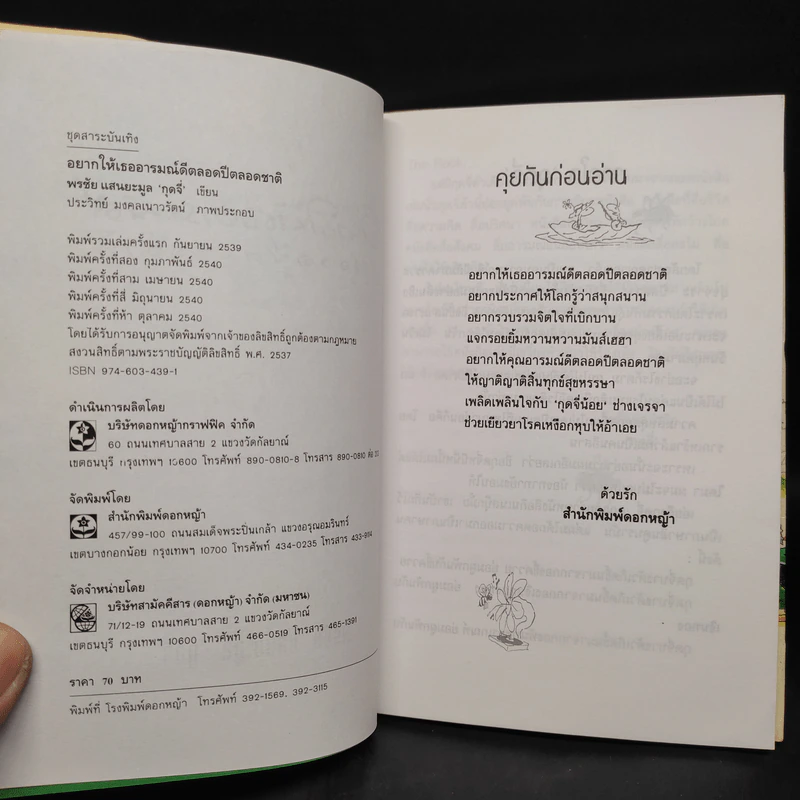 ชุดสาระบันเทิง
อยากให้เธออารมณ์ดีตลอดปีตลอดชาติ
พรชัย แสนยะมูล 'กุดจี่' เขียน
ประวิทย์ มงคลเนาวรัตน์ ภาพประกอบ
พิมพ์รวมเล่มครั้งแรก กันยายน 2539
พิมพ์ครั้งที่สอง กุมภาพันธ์ 2540
พิมพ์ครั้งที่สาม เมษายน 2540
พิมพ์ครั้งที่สี่ มิถุนายน 2540
พิมพ์ครั้งที่ห้า ตุลาคม 2540
โดยได้รับการอนุญาตจัดพิมพ์จากเจ้าของลิขสิทธิ์ถูกต้องตามกฎหมาย
สงวนสิทธิ์ตามพระราชบัญญัติลิขสิทธิ์ พ.ศ. 2537
ISBN 974-603-439-1
ดำเนินการผลิตโดย
บริษัทดอกหญ้ากราฟฟิค จำกัด
60 ถนนเทศบาลสาย 2 แขวงวัดกัลยาณ์
เขตธนบุรี กรุงเทพฯ 10600 โทรศัพท์ 890-0810-8 โทรสาร 890-0810 ต่อ
จัดพิมพ์โดย
สำนักพิมพ์ดอกหญ้า
457/99-100 ถนนสมเด็จพระปิ่นเกล้า แขวงอรุณอมรินทร์
เขตบางกอกน้อย กรุงเทพฯ 10700 โทรศัพท์ 434-0235 โทรสาร 433-9114
จัดจำหน่ายโดย
บริษัทสามัคคีสาร (ดอกหญ้า) จำกัด (มหาชน)
71/12-19 ถนนเทศบาลสาย 2 แขวงวัดกัลยาณ์
เขตธนบุรี กรุงเทพฯ 10600 โทรศัพท์ 466-0519 โทรสาร 465-1391
ราคา 70 บาท
พิมพ์ที่ โรงพิมพ์ดอกหญ้า โทรศัพท์ 392-1569, 392-3115
คุยกันก่อนอ่าน
อยากให้เธออารมณ์ดีตลอดปีตลอดชาติ
อยากประกาศให้โลกรู้ว่าสนุกสนาน
อยากรวบรวมจิตใจที่เบิกบาน
แจกรอยยิ้มหวานหวานมันส์เฮฮา
อยากให้คุณอารมณ์ดีตลอดปีตลอดชาติ
ให้ญาติญาติสิ้นทุกข์สุขหรรษา
เพลิดเพลินใจกับ 'กุดจี่น้อย' ช่างเจรจา
ช่วยเยียวยาโรคเหงือกหุบให้อ้าเอย
ด้วยรัก
สำนักพิมพ์ดอกหญ้า